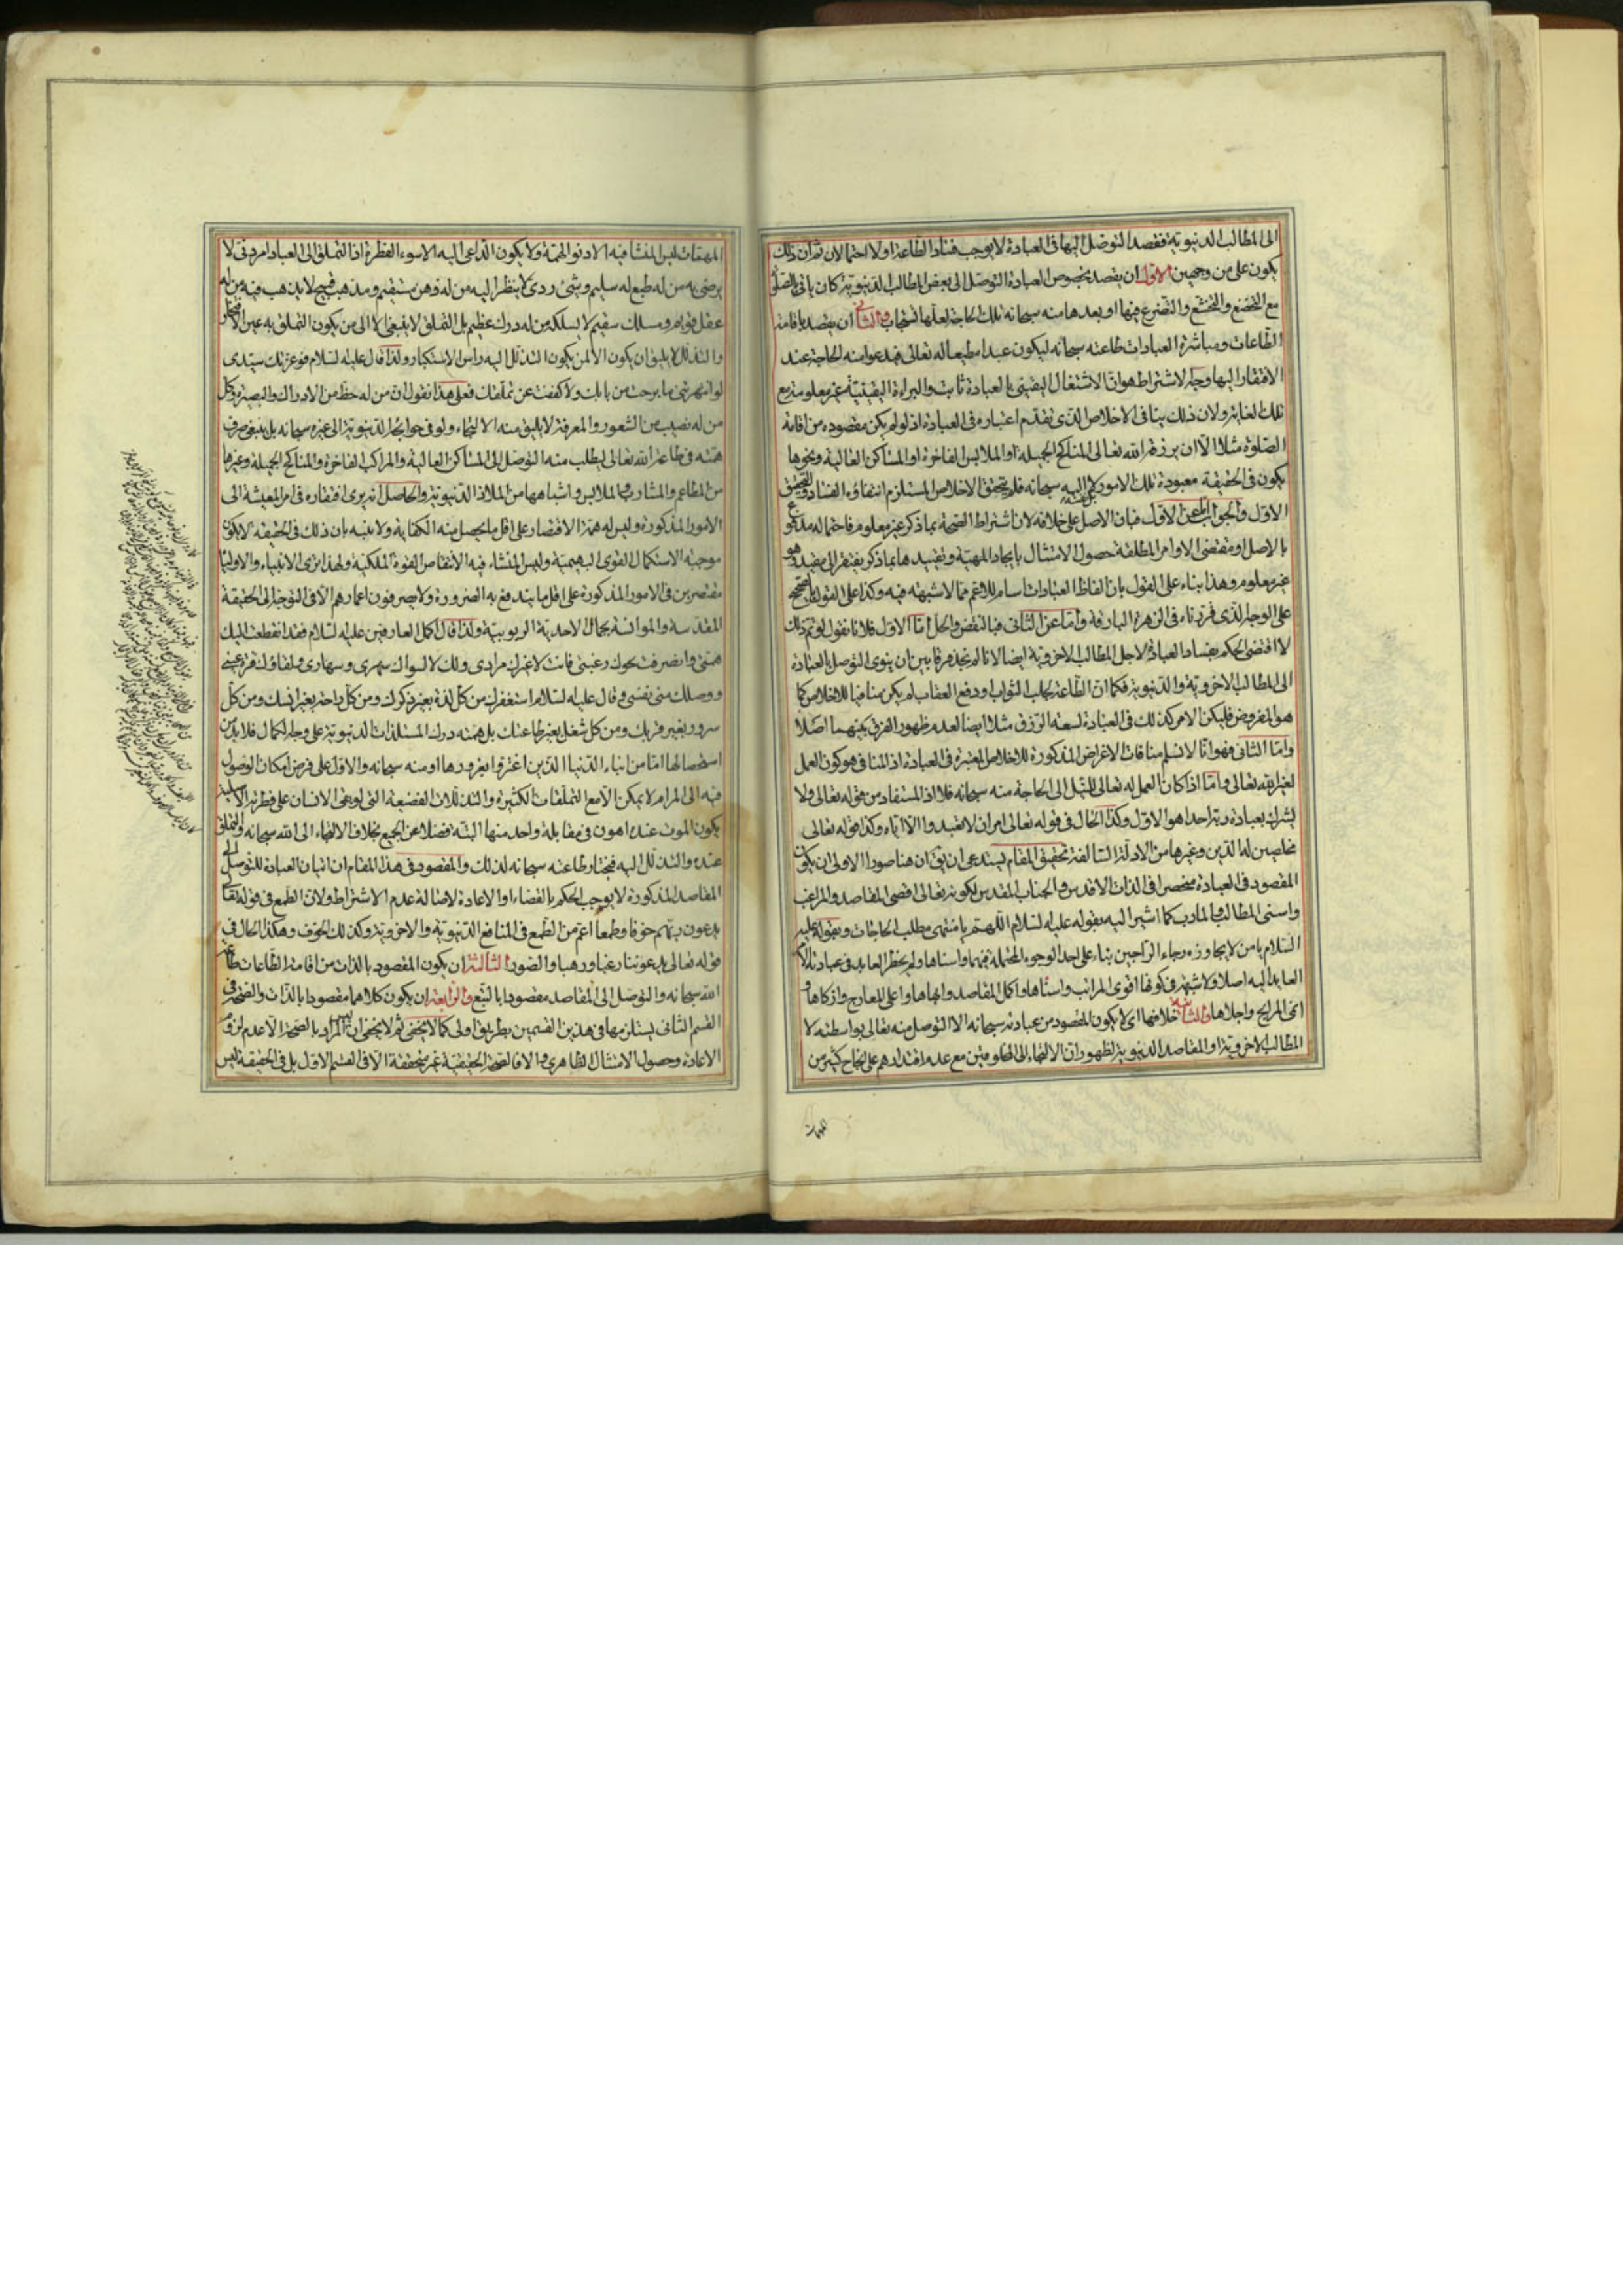 الى المطالب الدنيوية فقصد التوصل اليها فى العبادة لا يوجب فساد الطاعة اولا احتمالان ثم ان ذلك
يكون على من وجهين الاول ان يقصد بخصوص العبادة التوصل الى بعض المطالب الدنيوية كان ياتى بالصلوة
مع التخضع والتخشع والتضرع فيها او بعدها منه سبحانه تلك الحاجة لعلها تستجاب والثانى ان يقصد باقامة
الطاعات ومباشرة العبادات طاعته سبحانه ليكون عبدا مطيعا له تعالى فيدعو منه الحاجة عند
الافتقار اليها وجه الاشتراط هو ان الاشتغال اليقينى بالعبادة ثابت والبراءة اليقينية غير معلومة مع
تلك الغاية ولان ذلك ينافى الاخلاص الذى تقدم اعتباره فى العبادة اذ لو لم يكن مقصوده من اقامة
الصلوة مثلا الا ان يرزقه الله تعالى المناكح الجميلة او الملابس الفاخرة او المساكن العالية ونحوها
يكون فى الحقيقة معبودة تلك الامور لا اليه سبحانه فلم يتحقق الاخلاص المستلزم انتفاؤه الفساد والتحقيق
الاول والجواب اما عن الاول فبان الاصل على خلافه لان اشتراط الصحة بما ذكر غير معلوم فاحتماله مدفوع
بالاصل ومقتضى الاوامر المطلقة حصول الامتثال بايجاد المهية وتقييدها بما ذكر يفتقر الى مقيد وهو
غير معلوم وهذا بناء على القول بان الفاظ العبادات اسام للاعم مما لا شبهة فيه وكذا على القول بالصحيح
على الوجه الذى قررناه فى الزهرة البارقة واما عن الثانى فبالنقض والحل اما الاول فلانا نقول لو تم ذلك
لاقتضى الحكم بفساد العبادة لاجل المطالب الاخروية ايضا لانا لم نجد فرقا بين ان ينوى التوصل بالعبادة
الى المطالب الاخروية والدنيوية فكما ان الطاعة لجلب الثواب ودفع العقاب لم يكن منافيا للاخلاص كما
هو المفروض فليكن الامر كذلك فى العبادة لسعة الرزق مثلا ايضا لعدم ظهور الفرق بينهما اصلا
واما الثانى فهو انا لا نسلم منافات الاغراض المذكورة للاخلاص المعتبرة فى العبادة اذ المنافى هو كون العمل
لغير الله تعالى واما اذا كان العمل له تعالى للنيل الى الحاجة منه سبحانه فلا اذ المستفاد من قوله تعالى ولا
يشرك بعبادة ربه احدا هو الاول وكذا الحال فى قوله تعالى امر ان لا تعبدوا الا اياه وكذا قوله تعالى
مخلصين له الدين وغيرها من الادلة السالفة تحقيق المقام يستدعى ان يق ان هنا صورا الاولى ان يكون
المقصود فى العبادة منحصرا فى الذات الاقدس والجناب المقدس لكونه تعالى اقصى المقاصد والمراغب
واسنى المطالب والمارب كما اشير اليه بقوله عليه السلام اللهم يا منتهى مطلب الحاجات وبقوله عليه
السلام يا من لا يجاوزه رجاء الراجين بناء على احد الوجوه المحتملة فيهما واسناها ولم يخطر العابد فى عبادته الا
العابد اليه اصلا ولا شبهة فى كونها اقوى المراتب واسناها واكمل المقاصد وابهاها واعلى المعارج وازكاها و
المرابح واجلاها والثانية خلافها اى لا يكون المقصود من عبادته سبحانه الا التوصل منه تعالى بواسطته لا
المطالب الاخروية او المقاصد الدنيوية لظهور ان الالتجاء الى المخلوقين مع عدم اقتدارهم على انجاح كثير من
المهمات
المهمات ليس المنشا فيه الا دنو الهمة ولا يكون الداعى اليه الا سوء الفطرة اذ التملق الى العباد امر دنى لا
يرضى به من له طبع له سليم وشىء ردى لا ينظر اليه من له ذهن مستقيم ومذهب قبيح لا يذهب فيه من له
عقل قويم ومسلك سقيم لا يسلكه من له درك عظيم بل التملق لا ينبغى الا الى من يكون التملق به عين الافتخار
والتذلل لا يليق ان يكون الا لمن يكون التذلل اليه راس الاستكبار ولذا قال عليه السلام فوعزتك سيدى
لو انتهرتنى ما برحت من بابك ولا كففت عن تملقك فعلى هذا نقول ان من له حظ من الادراك والبصيرة وكل
من له نصيب من الشعور والمعرفة لا يليق منه الالتجاء ولو فى حوائجه الدنيوية الى غيره سبحانه بل ينبغى صرف
همته فى طاعة الله تعالى ليطلب منه التوصل الى المساكن العالية والمراكب الفاخرة والمناكح الجميلة وغيرها
من المطاعم والمشارب والملابس واشباهها من الملاذ الدنيوية والحاصل انه يرى افتقاره فى امر المعيشة الى
الامور المذكورة وليس له همة الاقتصار على اقل ما يحصل منه الكفاية ولا ينبه بان ذلك فى الحقيقة لا يكون
موجبه الاستكمال القوى البهيمية وليس المنشاء فيه الا نتقاص القوة الملكية ولهذا ترى الانبياء والاولياء
مقتصرين فى الامور المذكورة على اقل ما يندفع به الضرورة ولا يصرفون اعمارهم الا فى التوجه الى الحقيقة
المقدسة والموانسة بجمال الاحدية الربوبية ولذا قال اكمل العارفين عليه السلام فقد انقطعت اليك
همتى وانصرفت نحوك رغبتى فانت لا غيرك مرادى ولك لا لسواك سهرى وسهادى ولقاؤك قرة عينى
ووصلك منى نفسى وقال عليه السلام استغفرك من كل لذة بغير ذكرك ومن كل راحة بغير انسك ومن كل
سرور بغير قربك ومن كل شغل بغير طاعتك بل همته درك المستلذات الدنيوية على وجه الكمال فلا بد من
استحصالها اما من ابناء الدنيا الذين اغتروا بغرورها او منه سبحانه والاول على فرض امكان الوصول
فيه الى المرام لا يمكن الا مع التملقات الكثيرة والتذللات الفضيعة التى لو بقى الانسان على فطرته الاصلية
يكون الموت عنده اهون فى مقابلة واحد منها البتة فضلا عن الجميع بخلاف الالتجاء الى الله سبحانه والتملق
عنده والتذلل اليه فيختار طاعته سبحانه لذلك والمقصود فى هذا المقام ان اتيان العبادة للتوصل الى
المقاصد المذكورة لا يوجب الحكم بالقضاء او الاعادة لاصالة عدم الاشتراط ولان الطمع فى قوله تعا
يدعون ربهم خوفا وطمعا اعم من الطمع فى المنافع الدنيوية والاخروية وكذلك الخوف وهكذا الحال فى
قوله تعالى يدعوننا رغبا ورهبا والصورة الثالثة ان يكون المقصود بالذات من اقامة الطاعات طاعة
الله سبحانه والتوصل الى المقاصد مقصودا بالتبع والرابعة ان يكون كلاهما مقصودا بالذات والصحة فى
القسم الثانى يستلزمها فى هذين القسمين بطريق اولى كما لا يخفى ثم لا يخفى انه ليس المراد بالصحة الا عدم لزوم
الاعادة وحصول الامتثال الظاهرى والا فالصحة الحقيقية غير متحققة الا فى القسم الاول بل فى الحقيقة ليس